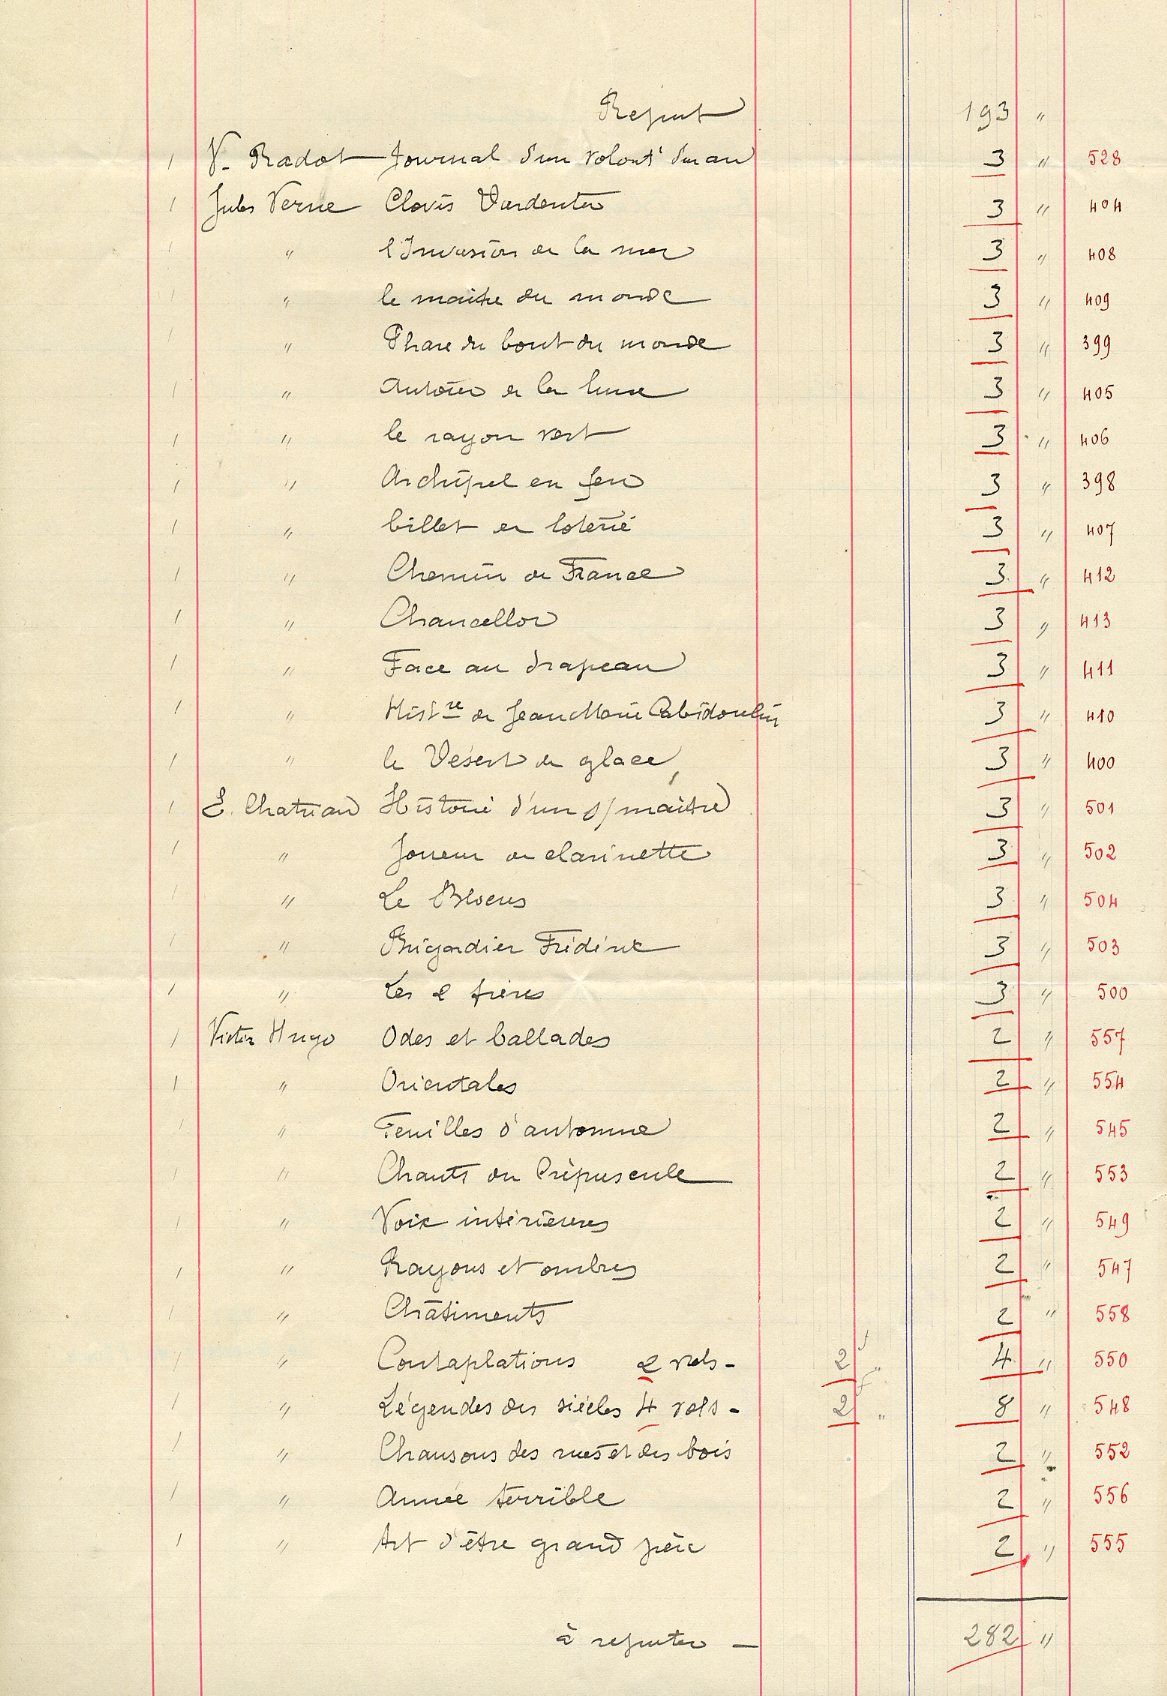 Report 193 "
1 V. Radot Journal d'un volont' d'un an 3 " 528
1 Jules Verne Clovis Dardentor 3 " 404
1 " l'Invasion de la mer 3 " 408
1 " le maitre du monde 3 " 409
1 " Phare du bout du monde 3 " 399
1 " Autour de la lune 3 " 405
1 " le rayon vert 3 " 406
1 " Archipel en feu 3 " 398
1 " billet de loterie 3 " 407
1 " Chemin de France 3 " 412
1 " Chancellor 3 " 413
1 " Face au drapeau 3 " 411
1 " Hist re de Jean Marie Cabidoulin 3 " 410
1 " le Désert de glace 3 " 400
1 E. Chatrian Histoire d'un s/maître 3 " 501
1 " Joueur de clarinette 3 " 502
1 " Le Blocus 3 " 504
1 " Brigardier Frédéric 3 " 503
1 " Les 2 frères 3 " 500
1 Victor Hugo Odes et ballades 2 " 557
1 " Orientales 2 " 554
1 " Feuilles d'automne 2 " 545
1 " Chants du Crépuscule 2 " 553
1 " Voix intérieures 2 " 549
1 " Rayons et ombres 2 " 547
1 " Châtiments 2 " 558
1 " Contaplations 2 vols - 2 " 4 " 550
1 " Légendes des siècles 4 vols - 2 " 8 " 548
1 " Chansons des rues et des bois 2 " 552
1 " Année terrible 2 " 556
1 " Art d'être grand père 2 " 555
à reporter — 282 "